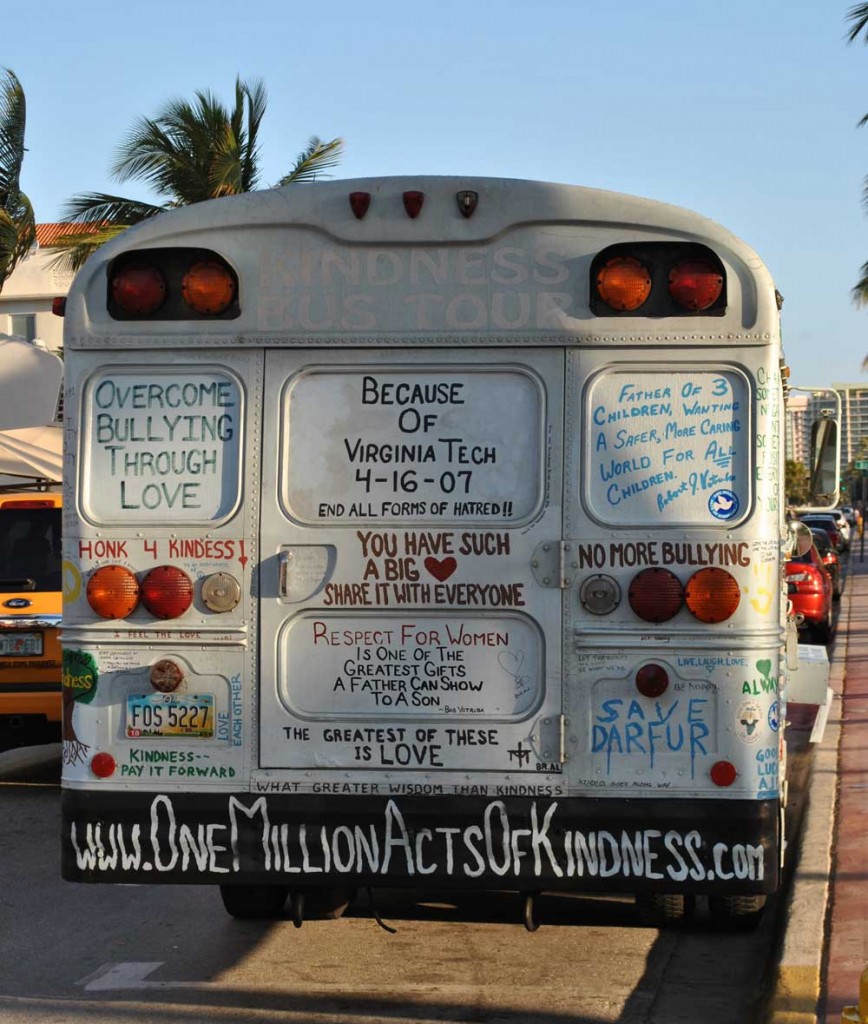 KINDNESS
BUS TOUR
OVERCOME
BULLYING
THROUGH
LOVE
BECAUSE
OF
VIRGINIA TECH
4-16-07
END ALL FORMS OF HATRED!!
FATHER OF 3
CHILDREN, WANTING
A SAFER, MORE CARING
WORLD FOR ALL
CHILDREN.
HONK 4 KINDESS!
YOU HAVE SUCH
A BIG
SHARE IT WITH EVERYONE
NO MORE BULLYING
I FEEL THE LOVE
RESPECT FOR WOMEN
IS ONE OF THE
GREATEST GIFTS
A FATHER CAN SHOW
TO A SON
- BOB VOTRUBA
LIVE, LAUGH, LOVE
FOS 5227
LOVE
EACH OTHER
SAVE
DARFUR
THE GREATEST OF THESE
IS LOVE
BR. AL
KINDNESS--
PAY IT FORWARD
WHAT GREATER WISDOM THAN KINDNESS
WWW.ONEMILLIONACTSOFKINDNESS.COM